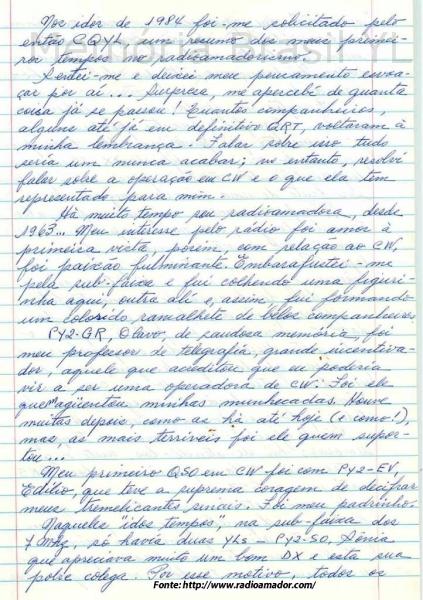 Nos idos de 1984 foi-me solicitado pelo
então CQYL um resumo dos meus primei-
ros tempos no radioamadorismo.
Sentei-me e deixei meu pensamento esvoa-
çar por aí... Surpresa, me apercebi de quanta
coisa já se passou! Quantos companheiros,
alguns até já em definitivo QRT, voltaram à
minha lembrança. Falar sobre isso tudo
seria um nunca acabar; no entanto, resolvi
falar sobre a operação em CW e o que ela tem
representado para mim.
Há muito tempo sou radioamadora, desde
1963... Meu interesse pelo rádio foi amor à
primeira vista, porém, com relação ao CW,
foi paixão fulminante. Embarafustei-me
pela sub-faixa e fui colhendo uma figuri-
nha aqui, outra ali e, assim, fui formando
um colorido, ramalhete de belos companheiros
PY2-GR, Olavo, de saudosa memória, foi
meu professor de telegrafia, grande incentiva-
dor, aquele que acreditou que eu poderia
vir a ser uma operadora de CW. Foi ele
quem agüentou minhas munhecadas. Houve
muitas depois, como as há até hoje (e como!),
mas, as mais terríveis foi ele quem supor-
tou...
Meu primeiro QSO em CW foi com PY2-EV,
Edílio, que teve a suprema coragem de decifrar
meus tremelicantes sinais. Foi meu padrinho.
Naqueles "idos tempos", na sub-faixa dos
7 MHz, só havia duas YLs - PY2-SO, Sônia
que apreciava muito um bom DX e esta sua
pobre colega. Por esse motivo, todos os
Fonte: http://www.radioamador.com/